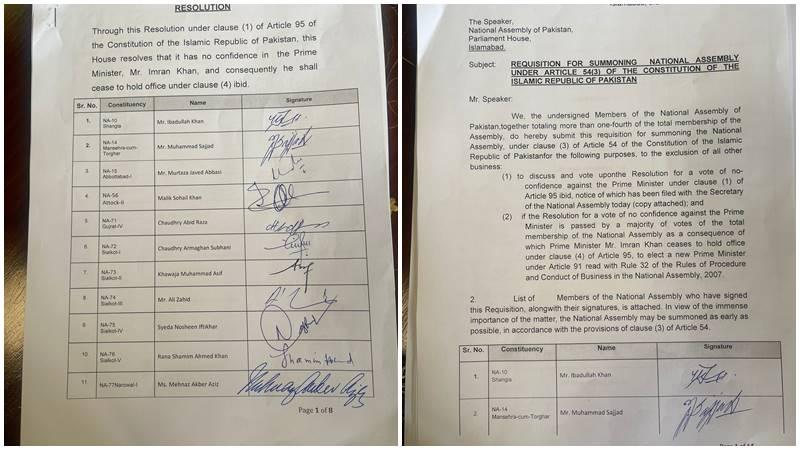 RESOLUTION
Through this Resolution under clause (1) of Article 95 of
the Constitution of the Islamic Republic of Pakistan, this
House resolves that it has no confidence in the Prime
Minister, Mr. Imran Khan, and consequently he shall
cease to hold office under clause (4) ibid.
Sr. No. Constituency Name Signature
1. NA-10 Shangla Mr. Ibadullah Khan
2. NA-14 Mansehra-cum-Torghar Mr. Muhammad Sajjad
3. NA-15 Abbottabad-I Mr. Murtaza Javed Abbasi
4. NA-56 Attock-II Malik Sohail Khan
5. NA-71 Gujrat-IV Chaudhry Abid Raza
6. NA-72 Sialkot-I Chaudhry Armaghan Subhani
7. NA-73 Sialkot-II Khawaja Muhammad Asif
8 NA-74 Sialkot-III Mr. Ali Zahid
9 NA-75 Sialkot-IV Syeda Nosheen Iftikhar
10 NA-76 Sialkot-V Rana Shamim Ahmed Khan
11 NA-77Narowal-I Ms. Mehnaz Akber Aziz
Page 1 of 8
The Speaker,
National Assembly of Pakistan,
Parliament House,
Islamabad.
Subject: REQUISITION FOR SUMMONING NATIONAL ASSEMBLY
UNDER ARTICLE 54(3) OF THE CONSTITUTION OF THE
ISLAMIC REPUBLIC OF PAKISTAN
Mr. Speaker:
We, the undersigned Members of the National Assembly of
Pakistan,together totaling more than one-fourth of the total membership of the
Assembly, do hereby submit this requisition for summoning the National
Assembly, under clause (3) of Article 54 of the Constitution of the Islamic
Republic of Pakistanfor the following purposes, to the exclusion of all other
business:
(1) to discuss and vote uponthe Resolution for a vote of no-
confidence against the Prime Minister under clause (1) of
Article 95 ibid, notice of which has been filed with the Secretary
of the National Assembly today (copy attached); and
(2) if the Resolution for a vote of no confidence against the Prime
Minister is passed by a majority of votes of the total
membership of the National Assembly as a consequence of
which Prime Minister Mr. Imran Khan ceases to hold office
under clause (4) of Article 95, to elect a new Prime Minister
under Article 91 read with Rule 32 of the Rules of Procedure
and Conduct of Business in the National Assembly, 2007.
2. List of Members of the National Assembly who have signed
this Requisition, alongwith their signatures, is attached. In view of the immense
importance of the matter, the National Assembly may be summoned as early as
possible, in accordance with the provisions of clause (3) of Article 54.
Sr. No. Constituency Name Signature
1. NA-10 Shangla Mr. Ibadullah Khan
2. NA-14 Mansehra-cum-Torghar Mr. Muhammad Sajjad